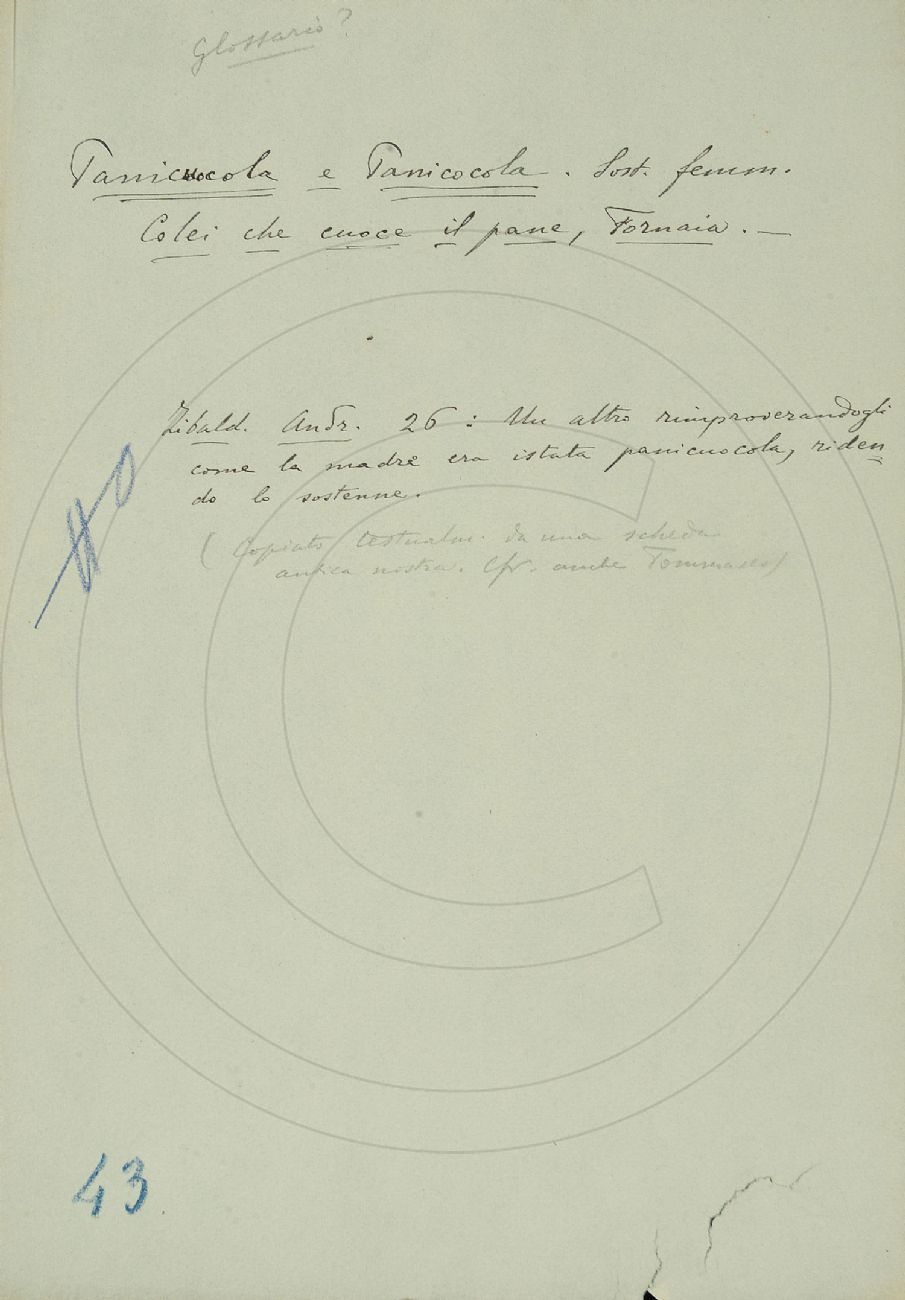 Glossario?
Panicuocola e Panicocola. Sost. femm.
Colei che cuoce il pane, Fornaia. —
Zibald. Andr. 26: Un altro rimproverandogli
come la madre era istata panicuocola, riden=
do lo sostenne.
(Copiato testualm. da una scheda
antica nostra. Cfr. anche Tommaseo)
43